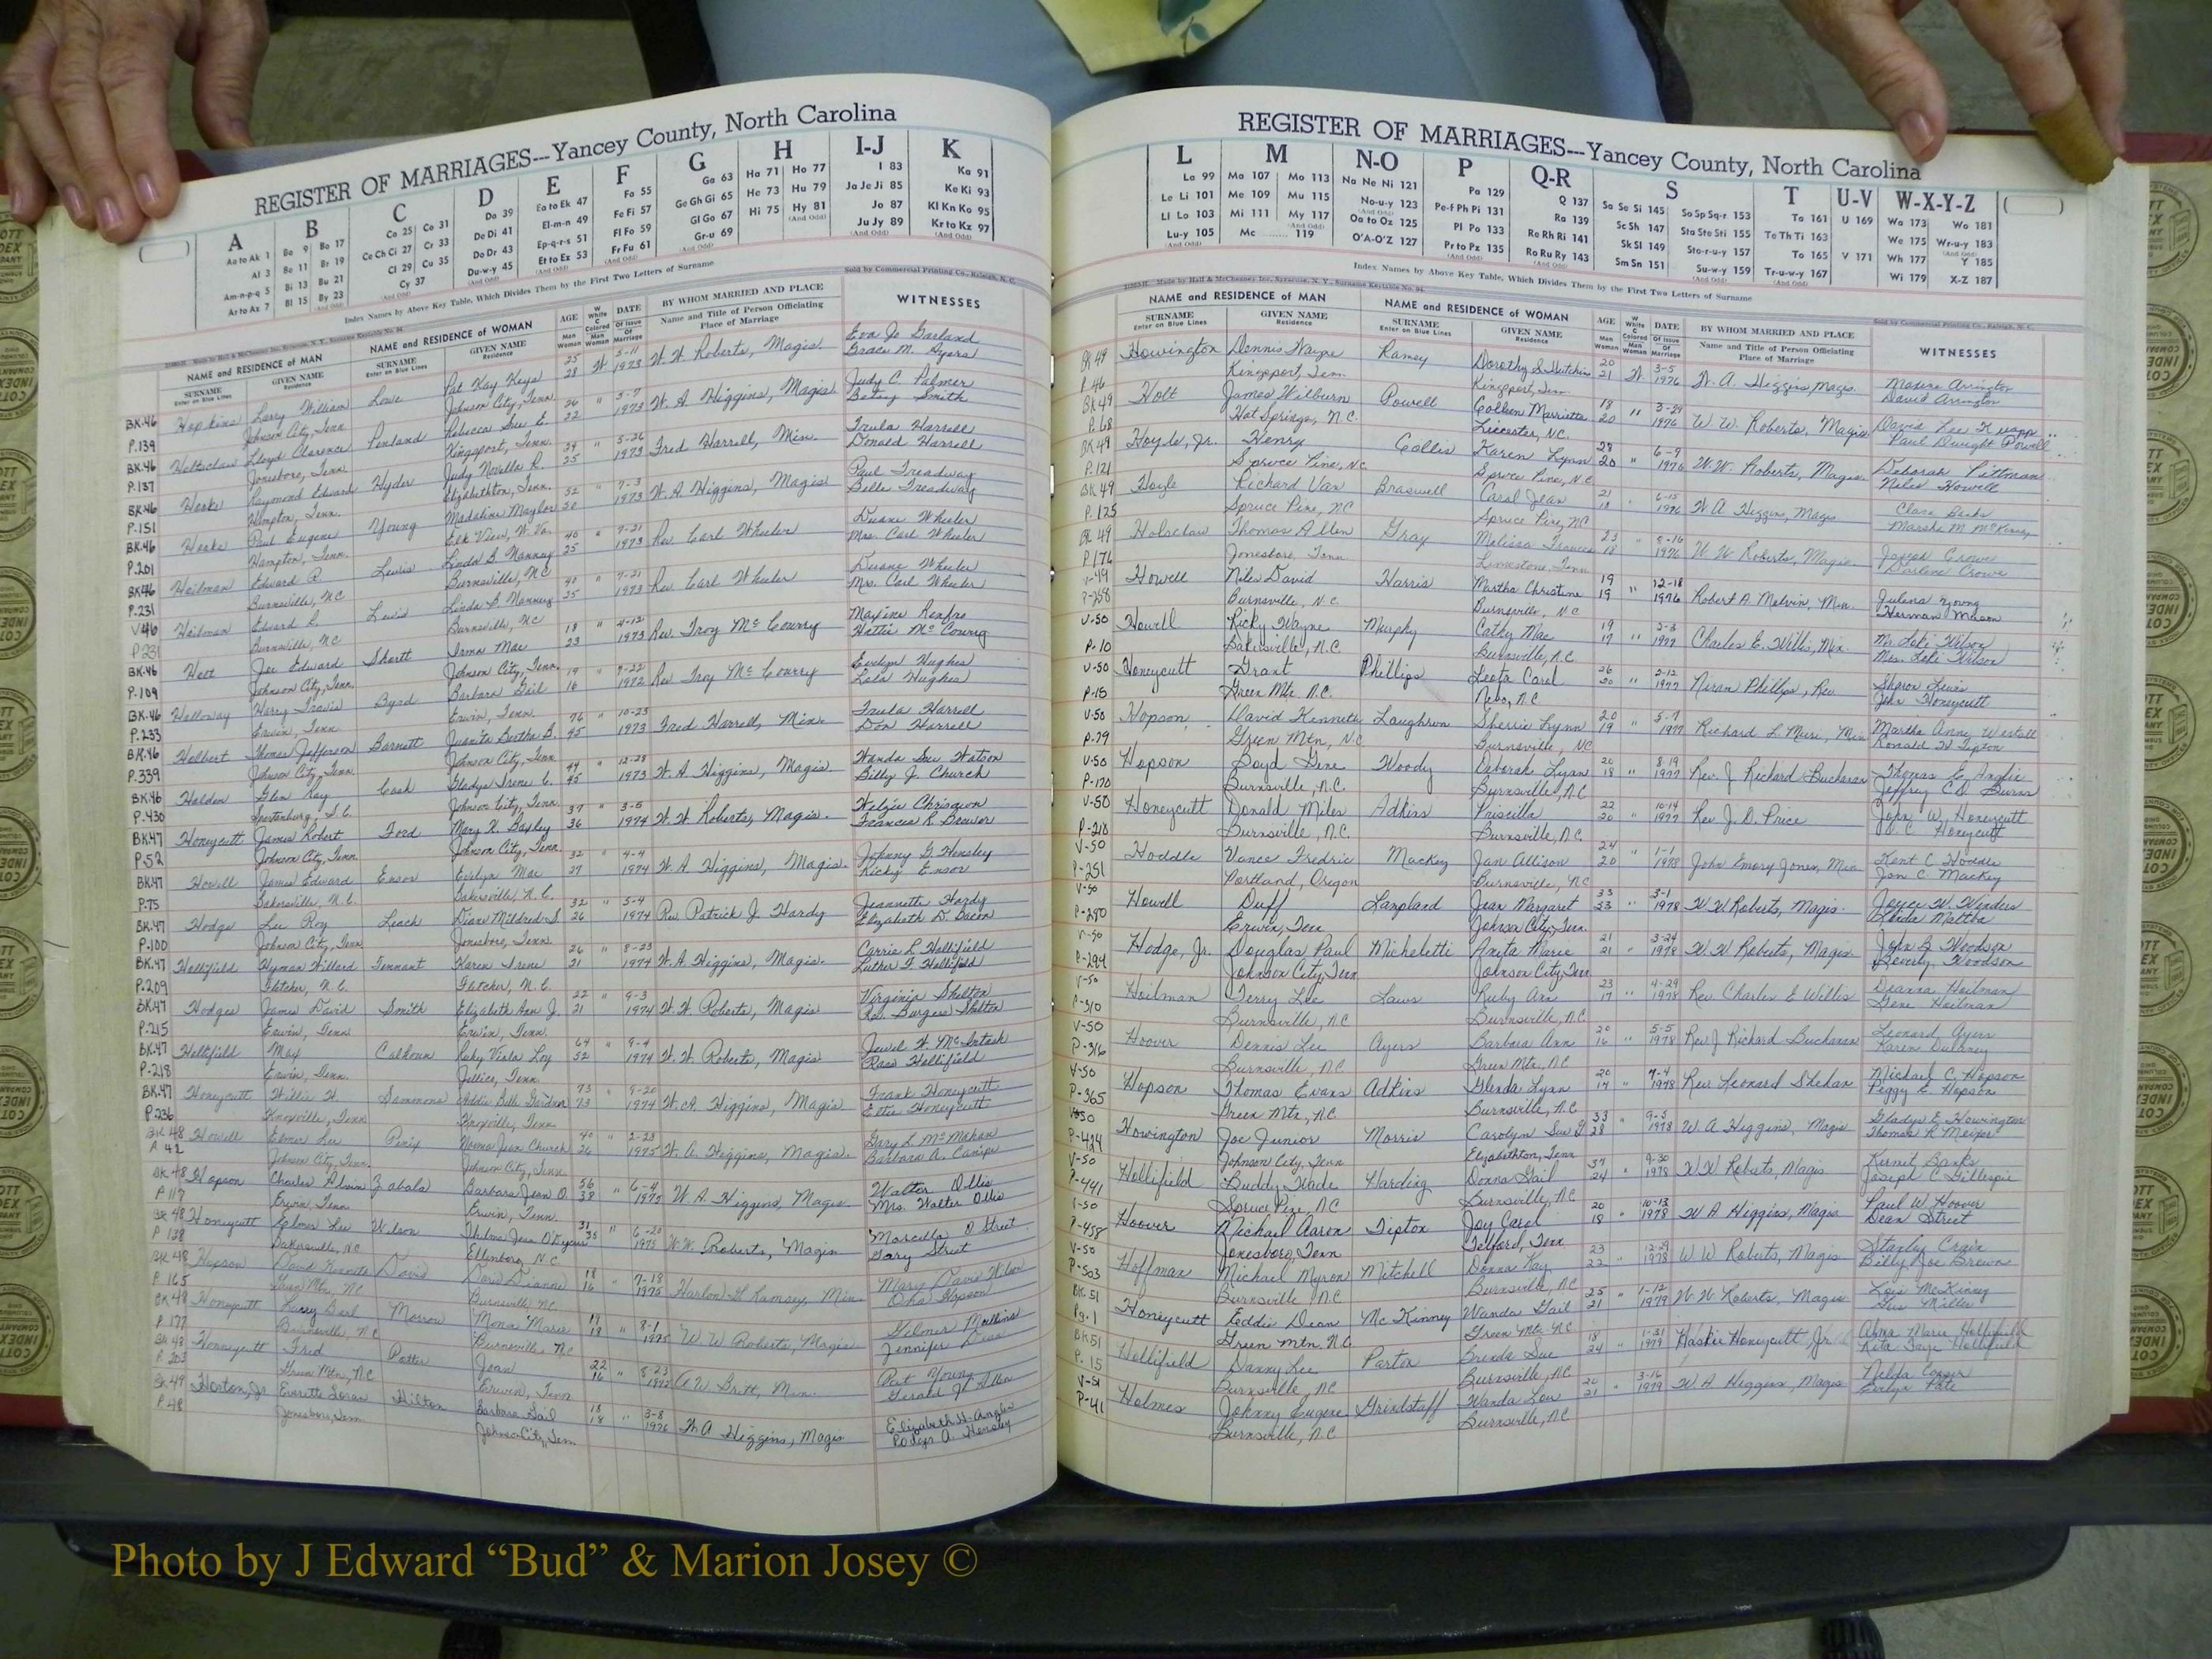 REGISTER OF MARRIAGES---Yancey County, North Carolina
A
Aa to Ak 1
Al 3
Am-n-p-q 5
Ar to Az 7
B
Ba 9 Bo 17
Be 11 Br 19
Bi 13 Bu 21
Bl 15 By 23
C
Ca 25 Co 31
Ce Ch Ci 27 Cr 33
Cl 29 Cu 35
Cy 37
D
Da 39
De Di 41
Do Dr 43
Du-w-y 45
E
Ea to Ek 47
El-m-n 49
Ep-q-r-s 51
Et to Ez 53
F
Fa 55
Fe Fi 57
Fl Fo 59
Fr Fu 61
G
Ga 63
Ge Gh Gi 65
Gl Go 67
Gr-u 69
H
Ha 71 Ho 77
He 73 Hu 79
Hi 75 Hy 81
I-J
I 83
Ja Je Ji 85
Jo 87
Ju Jy 89
K
Ka 91
Ke Ki 93
Kl Kn Ko 95
Kr to Kz 97
Index Names by Above Key Table, Which Divides Them by the First Two Letters of Surname
Sold by Commercial Printing Co., Raleigh, N. C.
NAME and RESIDENCE of MAN
SURNAME
Enter on Blue Lines
GIVEN NAME
Residence
NAME and RESIDENCE of WOMAN
SURNAME
Enter on Blue Lines
GIVEN NAME
Residence
AGE
Man
Woman
W White
C Colored
Man
Woman
DATE
Of Issue
Of Marriage
BY WHOM MARRIED AND PLACE
Name and Title of Person Officiating
Place of Marriage
WITNESSES
BK.46 Hopkins Larry William Lowe Pat Kay Keys 25 W 5-11 W. W. Roberts, Magis. Eva Jo Garland
P.139 Johnson City, Tenn. Johnson City, Tenn. 28 1973 Grace M. Byers
BK.46 Lloyd Clarence Penland Rebecca Sue E. 26 " 5-7 W. A. Higgins, Magis. Judy C. Palmer
P.137 Jonesboro, Tenn. Kingsport, Tenn. 22 1973 Betsy Smith
BK.46 Raymond Edward Hyder Judy Novella R. " 5-26 Fred Harrell, Min. Trula Harrell
P.151 Hampton, Tenn. Elizabethton, Tenn. 25 1973 Donald Harrell
BK.46 Paul Eugene Young Madaline Maylor 52 " 7-3 W. A. Higgins, Magis Paul Treadway
P.201 Hampton, Tenn. Elk View, W. Va. 1973 Belle Treadway
BK.46 Heilman Edward R. Lewis Linda B. Nanney 40 " 7-21 Rev. Carl Wheeler Duane Wheeler
P.231 Burnsville, NC Burnsville, NC 25 1973 Mrs. Carl Wheeler
V46 Heilman Edward R. Lewis Linda B. Nanney 40 " 7-21 Rev. Carl Wheeler Duane Wheeler
P231 Burnsville, NC Burnsville, NC 25 1973 Mrs. Carl Wheeler
BK.46 Joe Edward Shortt Irma Mae 18 " 4-12 Rev. Troy McCourry Maxine Renfro
P.109 Johnson City, Tenn. Johnson City, Tenn. 23 1973 Hattie McCourry
BK.46 Holloway Harry Travis Byrd Barbara Gail 19 " 9-22 Rev Troy McCourry Evelyn Hughes
P.233 Erwin, Tenn. Erwin, Tenn. 16 1972 Lola Hughes
BK.46 Holbert Thomas Jefferson Barnett Juanita Bertha B. 76 " 10-23 Fred Harrell, Min. Trula Harrell
P.339 Johnson City, Tenn. Johnson City, Tenn 45 1973 Don Harrell
BK.46 Holden Glen Ray Cash Gladys Irene C. 44 " 12-28 W. A. Higgins, Magis. Wanda Sue Watson
P.430 Spartanburg, S.C. Johnson City, Tenn. 45 1973 Billy J. Church
BK.47 Honeycutt James Robert Ford Mary K. Bagley 37 " 3-5 W. W. Roberts, Magis.
P.52 Johnson City, Tenn. Johnson City, Tenn. 36 1974 Frances R. Brewer
BK.47 Howell James Edward Ensor Evelyn Mae 32 " 4-4 W. A. Higgins, Magis. Johnny G. Hensley
P.75 Bakersville, N.C. Bakersville, N.C. 27 1974 Ricky Ensor
BK.47 Hodge Lee Roy Leach Diane Mildred S. 32 " 5-4 Rev. Patrick J. Hardy Jeannette Hardy
P.100 Johnson City, Tenn Jonesboro, Tenn. 26 1974 Elizabeth D. Bacon
BK.47 Hollifield Hyman Willard Tennant Karen Irene 26 " 8-23 W. A. Higgins, Magis. Carrie L. Hollifield
P.209 Fletcher, N.C. Fletcher, N.C. 21 1974 Luther F. Hollifield
BK47 Hodges James David Smith Elizabeth Ann J. 22 " 9-3 W. W. Roberts, Magis Virginia Shelton
P.215 Erwin, Tenn. Erwin, Tenn. 21 1974 Rev. Burgess Shelton
BK.47 Hollifield May Calhoun Ruby Viola Loy 64 " 9-4 W. W. Roberts, Magis Jewel H. McIntosh
P.218 Erwin, Tenn. Jellico, Tenn. 52 1974 Ross Hollifield
BK.47 Honeycutt Willie H. Sammons Addie Belle 73 " 9-20 W. A. Higgins, Magis Frank Honeycutt
P.236 Knoxville, Tenn. Knoxville, Tenn 73 1974 Ettie Honeycutt
BK.48 Howell Elmer Lee Penix Norma Jean Church 40 " 2-28 W. A. Higgins, Magis. Gary L. McMahan
P. 42 Johnson City, Tenn. Johnson City, Tenn. 36 1975 Barbara A. Canipe
BK.48 Hopson Charles Alvin Zabala Barbara Jean O. 56 " 6-4 W. A. Higgins, Magis Walter Ollis
P 117 Erwin, Tenn Erwin, Tenn. 38 1975 Mrs. Walter Ollis
BK 48 Honeycutt Elmer Lee Wilson Thelma Jean 31 " 6-20 W. W. Roberts, Magis Marcella B Street
P 138 Bakersville, NC Ellenboro, N.C. 35 1975 Gary Street
BK.48 Hopson David Kenneth Davis Doris Dianne 18 " 7-18 Harlon G Ramsey, Min. Mary Davis Wilson
P. 165 Green Mtn, NC Burnsville, NC 16 1975 Oka Hopson
BK 48 Honeycutt Larry Earl Morrow Mona Marie 19 " 8-1 W W Roberts, Magis. Gilmer Mathis
P. 177 Burnsville, NC Burnsville, NC 18 1975 Jennifer Dean
BK.48 Honeycutt Fred Potter Jean 22 " 8-23 W Britt, Min. Pat Young
P. 203 Green Mtn, NC Erwin, Tenn 16 1975 Gerald J. Allen
BK 49 Horton, Jr Everette Hilton Barbara Gail 18 " 3-8 W. A Higgins, Magis Elizabeth H. Angler
P. 48 Jonesboro, Tenn Johnson City, Tenn 18 1976 Rodger A. Hensley
REGISTER OF MARRIAGES---Yancey County, North Carolina
L
La 99
Le Li 101
Ll Lo 103
Lu-y 105
M
Ma 107 Mo 113
Me 109 Mu 115
Mi 111 My 117
Mc ........ 119
N-O
Na Ne Ni 121
No-u-y 123
Oa to Oz 125
O'A-O'Z 127
P
Pa 129
Pe-f Ph Pi 131
Pl Po 133
Pr to Pz 135
Q-R
Q 137
Ra 139
Re Rh Ri 141
Ro Ru Ry 143
S
Sa Se Si 145 So Sp Sq-r 153
Sc Sh 147 Sta Ste Sti 155
Sk Sl 149 Sto-r-u-y 157
Sm Sn 151 Su-w-y 159
T
Ta 161
Te Th Ti 163
To 165
Tr-u-w-y 167
U-V
U 169
V 171
W-X-Y-Z
Wa 173 Wo 181
We 175 Wr-u-y 183
Wh 177 Y 185
Wi 179 X-Z 187
Index Names by Above Key Table, Which Divides Them by the First Two Letters of Surname
Made by Hall & McChesney Inc., Syracuse, N. Y., Surname Keytable No. 94.
Sold by Commercial Printing Co., Raleigh, N. C.
NAME and RESIDENCE of MAN
SURNAME
Enter on Blue Lines
GIVEN NAME
Residence
NAME and RESIDENCE of WOMAN
SURNAME
Enter on Blue Lines
GIVEN NAME
Residence
AGE
Man
Woman
W White
C Colored
Man
Woman
DATE
Of Issue
Of Marriage
BY WHOM MARRIED AND PLACE
Name and Title of Person Officiating
Place of Marriage
WITNESSES
BK 49 Howington Dennis Wayne Ramey Dorothy S. Hutchins 20 W. 3-5 W. A. Higgins, Magis. Maxine Arrington
P. 46 Kingsport, Tenn. Kingsport, Tenn 21 1976 David Arrington
BK 49 Holt James Wilburn Powell Colleen Marrietta 18 " 3-29 W. W. Roberts, Magis David Lee
P. 68 Hot Springs, N.C. Leicester, NC. 20 1976 Paul Dwight Powell
BK 49 Hoyle, Jr. Henry Collis Karen Lynn 28 " 6-9 W. W. Roberts, Magis. Deborah Pittman
P. 121 Spruce Pine, NC Spruce Pine, N.C. 20 1976 Niles Howell
BK 49 Hoyle Richard Van Braswell Carol Jean 21 " 6-15 W A Higgins, Magis Clara Banks
P. 125 Spruce Pine, NC Spruce Pine, NC 18 1976 Marsha M. McKinney
BK 49 Holsclaw Thomas Allen Gray Melissa Frances 23 " 8-16 W. W. Roberts, Magis. Crowe
P 176 Jonesboro, Tenn Limestone, Tenn 18 1976 Darlene Crowe
V-49 Howell Niles David Harris Martha Christine 19 " 12-18 Robert A. Melvin, Min. Julena Young
P-258 Burnsville, N.C. Burnsville, NC 19 1976 Herman Mason
V-50 Howell Ricky Wayne Murphy Cathy Mae 19 " 2-3 Charles E. Willis, Min. Mr. Loti Wilson
P-10 Bakersville, N.C. Burnsville, N.C. 17 1977 Mrs. Loti Wilson
V-50 Honeycutt Grant Phillips Leota Carol 26 " 2-12 Niram Phillips, Rev Sharon Lewis
P-15 Green Mtn. N.C. Nebo, N.C. 20 1977 John Honeycutt
V-50 Hopson David Kenneth Laughrun Sherrie Lynn 20 " 5-7 Richard L. Muri, Min Martha Anne Westall
P-79 Green Mtn, N.C. Burnsville, NC 19 1977 Ronald H Tipton
V-50 Hopson Boyd Gene Woody Deborah Lynn 20 " 8-19 Rev. J Richard Buchanan Thomas C. Anglin
P-170 Burnsville, N.C. Burnsville, N.C 18 1977 Jeffrey C.D. Burns
V-50 Honeycutt Donald Miles Adkins Priscilla 22 " 10-14 Rev J. D. Price John W. Honeycutt
P-210 Burnsville, N.C. Burnsville, N.C. 20 1977 Honeycutt
V-50 Hoddle Vance Fredric Mackey Jan Allison 24 " 1-1 John Emory Jones, Min Kent C. Hoddle
P-251 Portland, Oregon Burnsville, NC 20 1978 Jon C. Mackey
V-50 Howell Duff Lanpland Jean Margaret 33 " 3-1 W W Roberts, Magis. Joyce W. Winders
P-290 Erwin, Tenn Johnson City, Tenn. 33 1978 Linda Mattha
V-50 Hodge, Jr. Douglas Paul Micheletti Anita Marie 21 " 3-24 W. W Roberts, Magis. John G Woodson
P-294 Johnson City, Tenn Johnson City, Tenn 21 1978 Beverly Woodson
V-50 Hoilman Terry Lee Laws Ruby Ann 23 " 4-29 Rev. Charles E Willis Deanna Hoilman
P-310 Burnsville, N.C Burnsville, N.C. 17 1978 Gene Hoilman
V-50 Hoover Dennis Lee Ayers Barbara Ann 20 " 5-5 Rev J Richard Buchanan Leonard Ayers
P-316 Burnsville, NC Green Mtn, NC 16 1978 Karen Dulaney
V-50 Hopson Thomas Evans Adkins Glenda Lynn 20 " 7-4 Rev Leonard Shehan Michael C. Hopson
P-365 Green Mtn, N.C. Burnsville, N.C 19 1978 Peggy E. Hopson
V-50 Howington Joe Junior Morris Carolyn Sue G 33 " 9-5 W. A Higgins, Magis Gladys E. Howington
P-424 Johnson City, Tenn Elizabethton, Tenn 28 1978 Thomas R Meixer
V-50 Hollifield Buddy Wade Harding Donna Gail 37 " 9-30 W W Roberts, Magis Kermit Banks
P-441 Spruce Pine, NC Burnsville, NC 24 1978 Joseph C. Gillespie
V-50 Hoover Michael Aaron Tipton Joy Carol 20 " 10-13 W A Higgins, Magis Paul W Hoover
P-458 Jonesboro, Tenn Telford, Tenn 18 1978 Dean Street
V-50 Hoffman Michael Myron Mitchell Donna Kay 23 " 12-29 W W Roberts, Magis Stanley Crain
P-503 Burnsville, NC Burnsville, NC 22 1978 Billy Joe Brown
BK.51 Honeycutt Eddie Dean McKinney Wanda Gail 25 " 1-12 W. W. Roberts, Magis Lois McKinney
Pg. 1 Green Mtn. N.C. Green Mtn. NC 21 1979 Gus Miller
BK51 Hollifield Danny Lee Parton Brenda Sue 18 " 1-31 Haskie Honeycutt Jr Alma Marie Hollifield
P. 15 Burnsville, NC Burnsville, NC 24 1979 Rita Faye Hollifield
V-51 Holmes Johnny Eugene Grindstaff Wanda Lou 20 " 3-16 W A Higgins, Magis Nelda Cooper
P-41 Burnsville, N.C Burnsville, N.C 21 1979 Evelyn Pate
Photo by J Edward “Bud” & Marion Josey ©